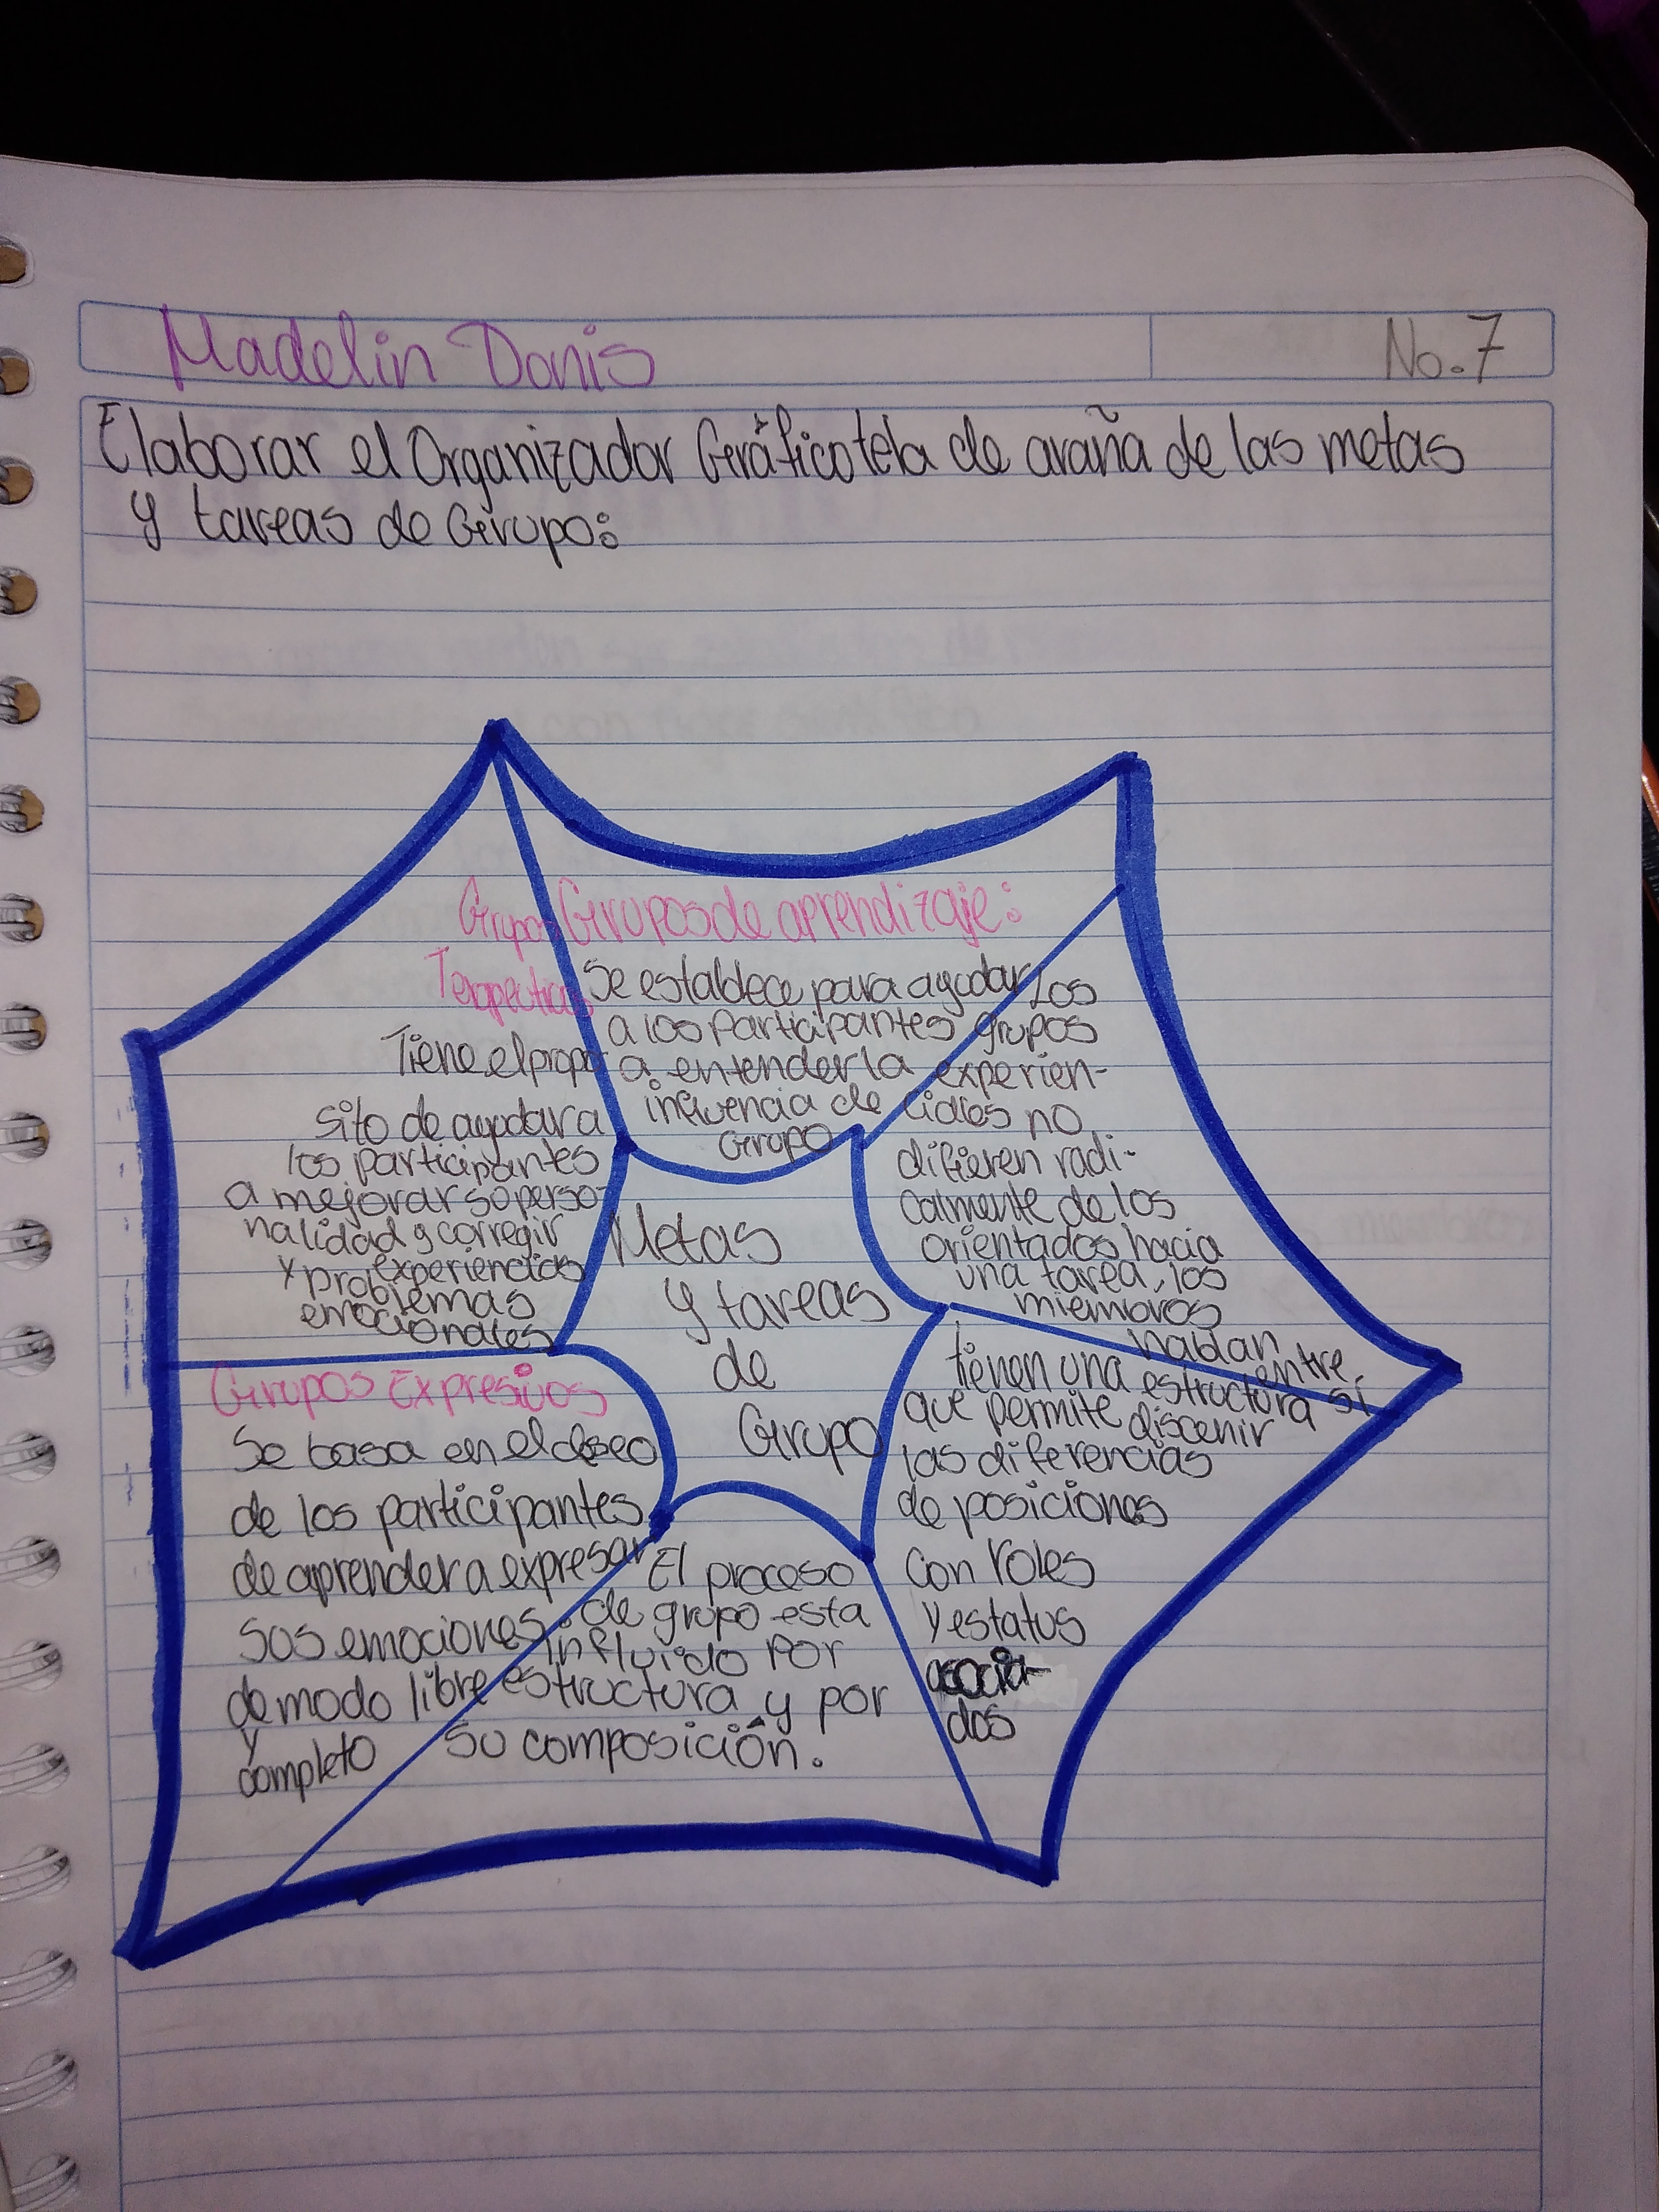 Madelin Donis
No. 7
Elaborar el Organizador Gráfico tela de araña de las metas
y tareas de Grupo:
Grupos
Terapeuticos
Tiene el propo
sito de ayudar a
los participantes
a mejorar su perso-
nalidad y corregir
y experiencias
problemas
emocionales
Grupos de aprendizaje:
Se establece para ayudar
a los Participantes
a entender la
influencia de
Grupo
Los
grupos
experien-
ciales no
difieren radi-
calmente de los
orientados hacia
una tarea, los
miembros
hablan
entre
sí
Metas
y tareas
de
Grupo
Grupos Expresivos
Se basa en el deseo
de los participantes
de aprender a expresar
sus emociones
de modo libre
y
completo
El proceso
de grupo esta
influido por
estructura y por
su composición.
tienen una estructura
que permite discenir
las diferencias
de posiciones
con roles
y estatus
asocia-
dos